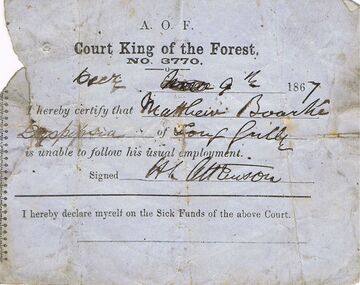 A. O. F.
Court King of the Forest,
NO. 3770.
Decr 9th 1867
I hereby certify that Matthew Bourke
of Long Gully
is unable to follow his usual employment.
Signed H L Atkinson
I hereby declare myself on the Sick Funds of the above Court.